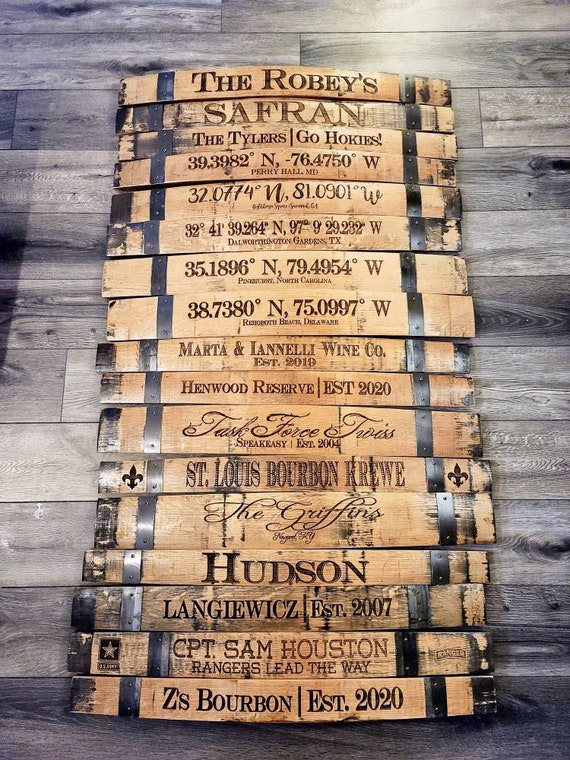 The Robey's
SAFRAN
The Tylers | Go Hokies!
39.3982° N, -76.4750° W
Perry Hall, MD
32.0774° N, 81.0901° W
32° 41' 39.264" N, 97° 9' 29.232" W
Dalworthington Gardens, TX
35.1896° N, 79.4954° W
Pinehurst, North Carolina
38.7380° N, 75.0997° W
Rehoboth Beach, Delaware
Marta & Iannelli Wine Co.
Est. 2019
Henwood Reserve | EST 2020
Task Force Twiss
Speakeasy | Est. 2004
ST. LOUIS BOURBON KREWE
The Griffins
KY
Hudson
Langiewicz | Est. 2007
CPT. SAM HOUSTON
RANGERS LEAD THE WAY
U.S. ARMY
RANGER
Z's Bourbon | Est. 2020